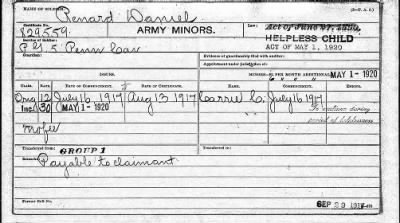 NAME OF SOLDIER:
Renard Daniel
Certificate No.
829559.
ARMY MINORS.
Act of June 27, 1890.
HELPLESS CHILD
ACT OF MAY 1, 1920
Service of Soldier:
Co. G. 5 Penn Cav
Guardian:
Evidence of guardianship filed with auditor:
Appointment under jurisdiction
ISSUE.
MINORS. $2 PER MONTH ADDITIONAL
MAY 1 - 1920
CLASS. RATE. COMMENCEMENT. COMMENCEMENT.
Orig 12 July 16 1917 Aug 13 1917 Carrie C. July 16 1917
Inc. 30 MAY 1 - 1920 To continue during
period of helplessness
Transferred from: GROUP 1
Issues:
Payable to claimant
Transferred to:
Former Roll No.
SEP 29 1917